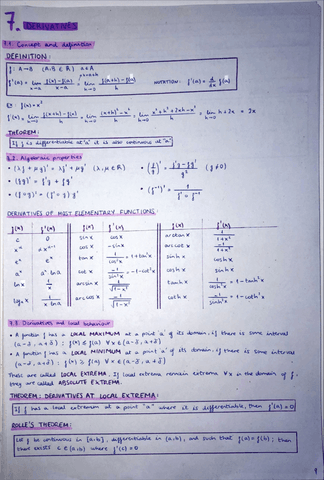 7. DERIVATIVES
7.1. Concept and definition
DEFINITION:
f: A→B (A,B ⊆ ℝ) a∈A
f'(a) = lim x→a f(x)-f(a)/x-a = lim h→0 f(a+h)-f(a)/h NOTATION: f'(a) = d/dx f(a)
f(x)=x²
f'(x) = lim h→0 f(x+h)-f(x)/h = lim h→0 (x+h)²-x²/h = lim h→0 x²+h²+2xh-x²/h = lim h→0 h+2x = 2x
THEOREM:
If f is differentiable at "a" it is also continuous at "a"
7.2. Algebraic properties
• (λf + μg)' = λf' + μg' (λ,μ∈ℝ) • (f/g)' = f'g - fg'/g² (g≠0)
• (fg)' = f'g + fg'
• (f∘g)' = (f'∘g) g' • (f⁻¹)' = 1/f'∘f⁻¹
DERIVATIVES OF MOST ELEMENTARY FUNCTIONS:
f(x) f'(x) f(x) f'(x) f(x) f'(x)
c 0 sin x cos x arctan x 1/1+x²
x^α αx^α-1 cos x -sin x arccot x -1/1+x²
e^x e^x tan x 1/cos²x = 1+tan²x sinh x cosh x
a^x a^x ln a cot x -1/sin²x = -1-cot²x cosh x sinh x
ln x 1/x arcsin x 1/√1-x² tanh x 1/cosh²x = 1-tanh²x
log_a x 1/x ln a arccos x -1/√1-x² coth x -1/sinh²x = 1-coth²x
7.3. Derivatives and local behaviour
• A function f has a LOCAL MAXIMUM at a point 'a' of its domain, if there is some interval
(a-δ, a+δ) : f(x) ≤ f(a) ∀x∈(a-δ, a+δ)
• A function f has a LOCAL MINIMUM at a point 'a' of its domain, if there is some interval
(a-δ, a+δ) : f(x) ≥ f(a) ∀x∈(a-δ, a+δ)
These are called LOCAL EXTREMA. If local extrema remain extrema ∀x in the domain of f,
they are called ABSOLUTE EXTREMA.
THEOREM: DERIVATIVES AT LOCAL EXTREMA:
If f has a local extremum at a point "a" where it is differentiable, then f'(a)=0
ROLLE'S THEOREM:
Let f be continuous in [a,b], differentiable in (a,b), and such that f(a)=f(b); then
that exists c∈(a,b) where f'(c)=0